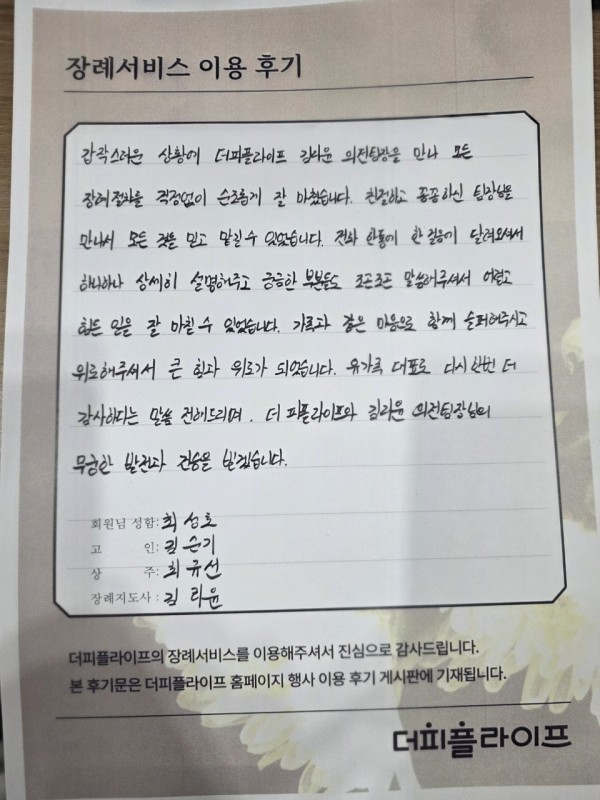 장례서비스 이용 후기
갑작스러운 상황에 더피플라이프 김라윤 의전팀장을 만나 모든
장례절차를 걱정없이 순조롭게 잘 마쳤습니다. 친절하고 꼼꼼하신 팀장님을
만나서 모든 것을 믿고 맡길 수 있었습니다. 전화 한통에 한걸음에 달려오셔서
하나하나 상세히 설명해주고 궁금한 부분들도 조곤조곤 말씀해주셔서 어렵고
힘든 일을 잘 마칠 수 있었습니다. 가족과 같은 마음으로 함께 슬퍼해주시고
위로해주셔서 큰 힘과 위로가 되었습니다. 유가족 대표로 다시한번 더
감사하다는 말씀 전해드리며. 더피플라이프와 김라윤 의전팀장님의
무궁한 발전과 건승을 빌겠습니다.
회원님 성함: 최성호
고 인: 김순기
상 주: 최규선
장례지도사: 김라윤
더피플라이프의 장례서비스를 이용해주셔서 진심으로 감사드립니다.
본 후기문은 더피플라이프 홈페이지 행사 이용 후기 게시판에 기재됩니다.
더피플라이프